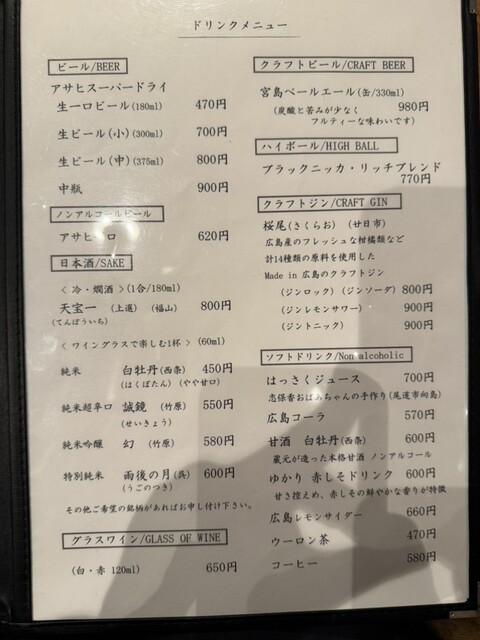 ドリンクメニュー
ビール/BEER
アサヒスーパードライ
生一口ビール(180ml) 470円
生ビール(小)(300ml) 700円
生ビール(中)(375ml) 800円
中瓶 900円
ノンアルコールビール
アサヒゼロ 620円
日本酒/SAKE
< 冷・燗酒 >(1合/180ml)
天宝一 (上選) (福山) 800円
(てんぽういち)
< ワイングラスで楽しむ1杯 > (60ml)
純米 白牡丹(西条) 450円
(はくぼたん) (やや甘口)
純米超辛口 誠鏡 (竹原) 550円
(せいきょう)
純米吟醸 幻 (竹原) 580円
特別純米 雨後の月(呉) 600円
(うごのつき)
その他ご希望の銘柄があればお申し付け下さい。
グラスワイン/GLASS OF WINE
(白・赤 120ml) 650円
クラフトビール/CRAFT BEER
宮島ペールエール(缶/330ml)
980円
(炭酸と苦みが少なく
フルティーな味わいです)
ハイボール/HIGH BALL
ブラックニッカ・リッチブレンド
770円
クラフトジン/CRAFT GIN
桜尾(さくらお) (廿日市)
広島産のフレッシュな柑橘類など
計14種類の原料を使用した
Made in 広島のクラフトジン
(ジンロック) (ジンソーダ) 800円
(ジンレモンサワー) 900円
(ジントニック) 900円
ソフトドリンク/Non alcoholic
はっさくジュース 700円
志保香おばあちゃんの手作り(尾道市向島)
広島コーラ 570円
甘酒 白牡丹(西条) 600円
蔵元が造った本格甘酒 ノンアルコール
ゆかり 赤しそドリンク 600円
甘さ控えめ、赤しその鮮やかな香りが特徴
広島レモンサイダー 660円
ウーロン茶 470円
コーヒー 580円